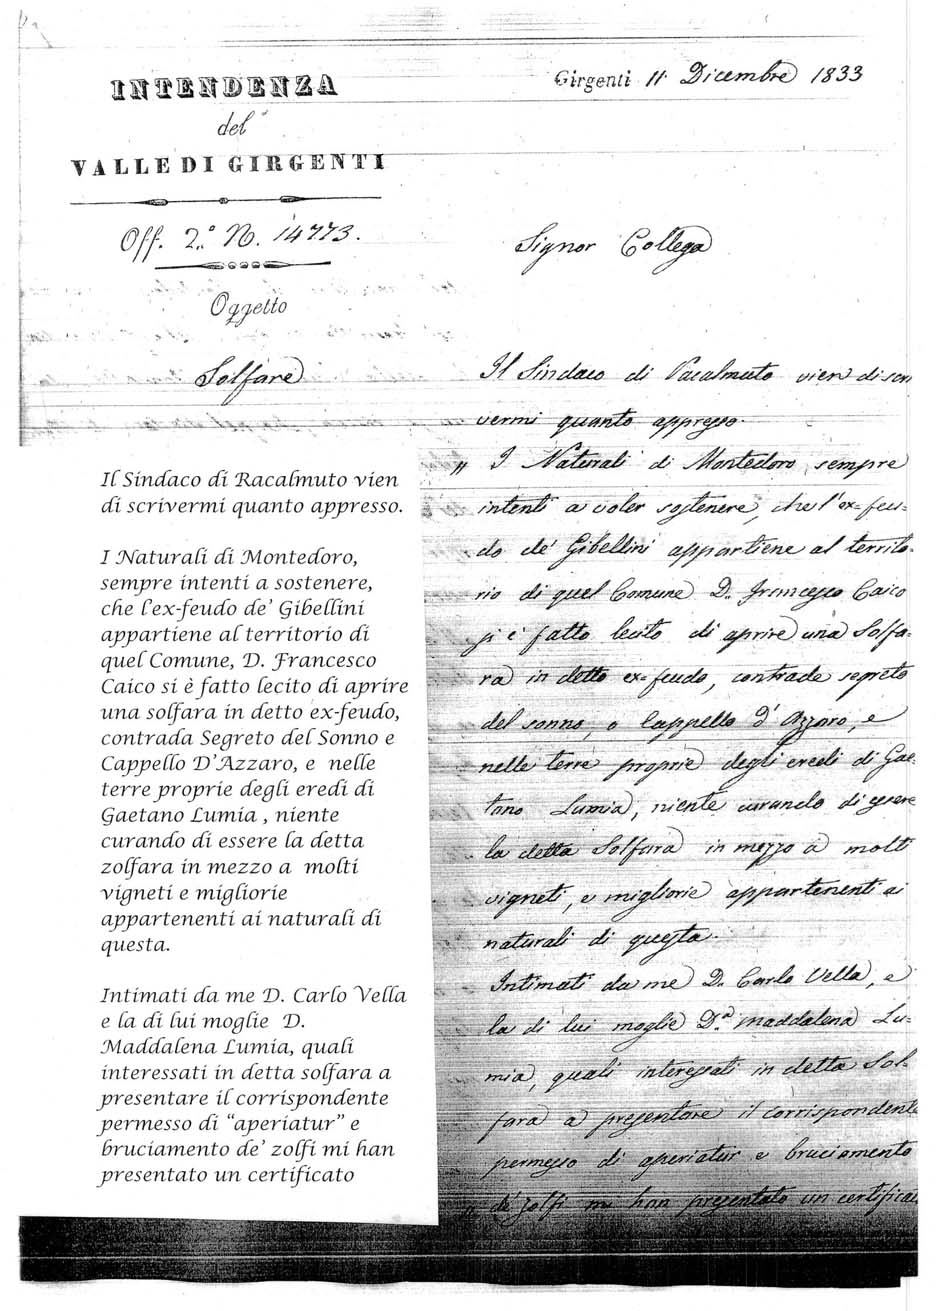 INTENDENZA
del
VALLE DI GIRGENTI
Off. 2.° N. 14773.
Oggetto
Solfare
Girgenti 11 Dicembre 1833
Signor Collega
Il Sindaco di Racalmuto vien di scri
vermi quanto appresso.
„ I Naturali di Montedoro, sempre
intenti a voler sostenere, che l'ex=feu=
do de' Gibellini appartiene al territo=
rio di quel Comune D. Francesco Caico
si è fatto lecito di aprire una Solfa=
ra in detto ex=feudo, contrade segreto
del sonno, o Cappello d'Azzaro, e
nelle terre proprie degli eredi di Gae=
tano Lumia, niente curando di essere
la detta Solfara in mezzo a molti
vigneti, e migliorie appartenenti ai
naturali di questa.
Intimati da me D. Carlo Vella, e
la di lui moglie D.a Maddalena Lu=
mia, quali interessati in detta Sol=
fara a presentare il corrispondente
permesso di aperiatur e bruciamento
„ de' zolfi mi han presentato un certificat
Il Sindaco di Racalmuto vien
di scrivermi quanto appresso.
I Naturali di Montedoro,
sempre intenti a sostenere,
che l'ex-feudo de' Gibellini
appartiene al territorio di
quel Comune, D. Francesco
Caico si è fatto lecito di aprire
una solfara in detto ex-feudo,
contrada Segreto del Sonno e
Cappello D'Azzaro, e nelle
terre proprie degli eredi di
Gaetano Lumia , niente
curando di essere la detta
zolfara in mezzo a molti
vigneti e migliorie
appartenenti ai naturali di
questa.
Intimati da me D. Carlo Vella
e la di lui moglie D.
Maddalena Lumia, quali
interessati in detta solfara a
presentare il corrispondente
permesso di “aperiatur” e
bruciamento de' zolfi mi han
presentato un certificato